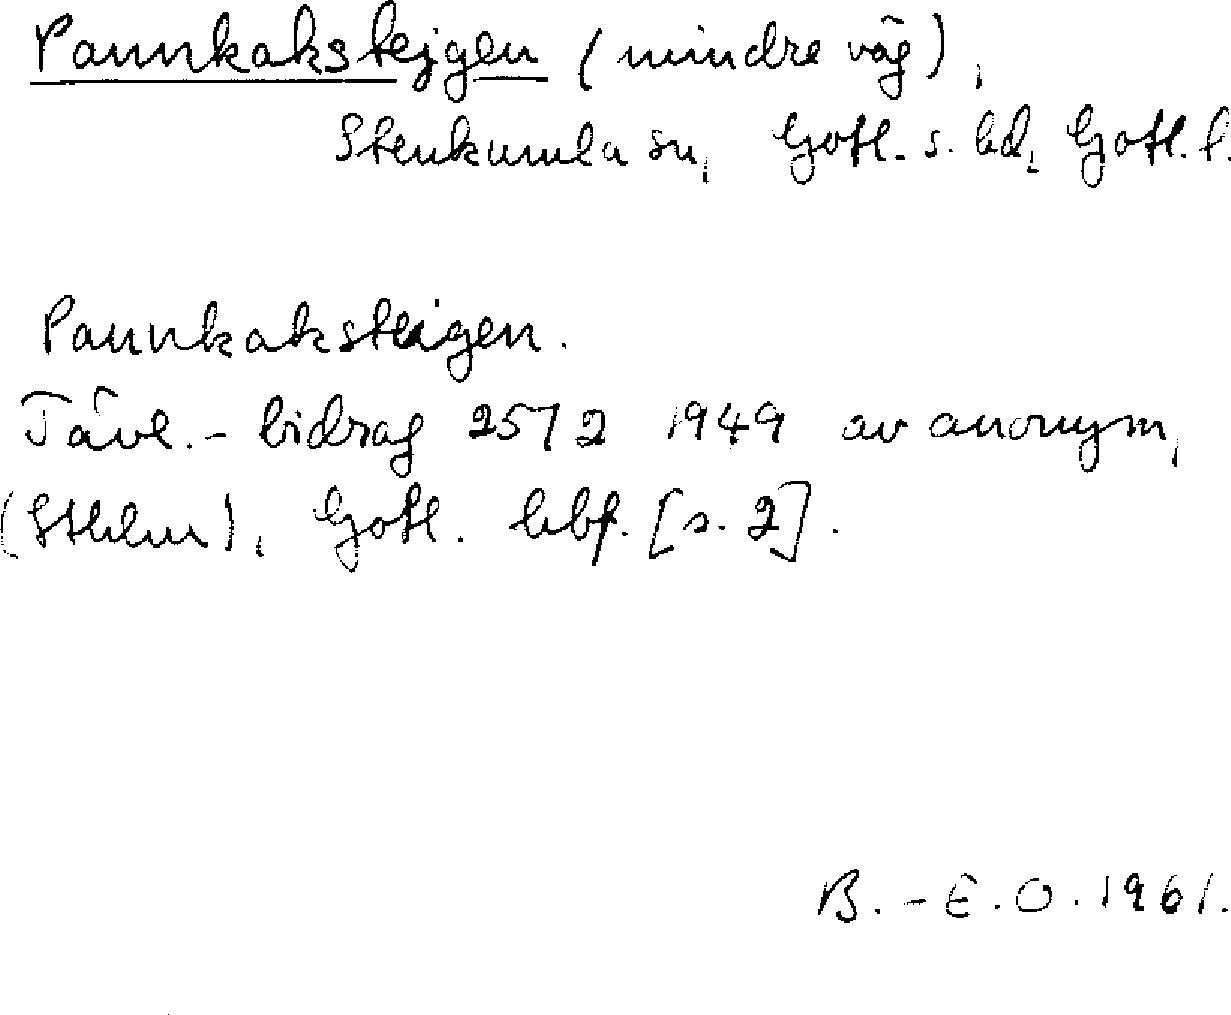 Pannkakstejgen (mindre väg),
Stenkumla sn, Gotl. s. hd, Gotl. l.
Pannkaksteigen.
Tävl.-bidrag 2572 1949 av anonym,
(Sthlm), Gotl. hbf. [s. 2].
B.-E.O. 1961.